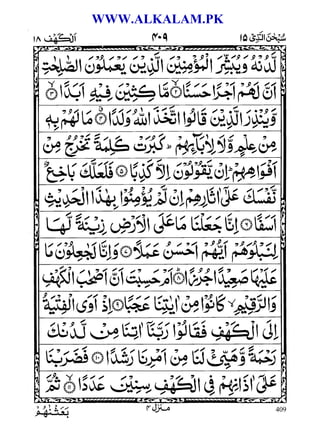 WWW.ALKALAM.PK
سُبْحٰنَ الَّذِیْۤ ۱۵
۴۰۹
اَلْكَهْف ۱۸
لَّدُنْهُ وَیُبَشِّرَ الْمُؤْمِنِیْنَ الَّذِیْنَ یَعْمَلُوْنَ الصّٰلِحٰتِ
اَنَّ لَهُمْ اَجْرًا حَسَنًا ۲ مَّاكِثِیْنَ فِیْهِ اَبَدًا ۳
وَّیُنْذِرَ الَّذِیْنَ قَالُوا اتَّخَذَ اللّٰهُ وَلَدًا ۴ مَا لَهُمْ بِهٖ
مِنْ عِلْمٍ وَّلَا لِاٰبَآئِهِمْ ؕ كَبُرَتْ كَلِمَةً تَخْرُجُ مِنْ
اَفْوَاهِهِمْ ؕ اِنْ یَّقُوْلُوْنَ اِلَّا كَذِبًا ۵ فَلَعَلَّكَ بَاخِعٌ
نَّفْسَكَ عَلٰۤی اٰثَارِهِمْ اِنْ لَّمْ یُؤْمِنُوْا بِهٰذَا الْحَدِیْثِ
اَسَفًا ۶ اِنَّا جَعَلْنَا مَا عَلَی الْاَرْضِ زِیْنَةً لَّهَا
لِنَبْلُوَهُمْ اَیُّهُمْ اَحْسَنُ عَمَلًا ۷ وَاِنَّا لَجٰعِلُوْنَ مَا
عَلَیْهَا صَعِیْدًا جُرُزًا ۸ اَمْ حَسِبْتَ اَنَّ اَصْحٰبَ الْكَهْفِ
وَالرَّقِیْمِ ۙ كَانُوْا مِنْ اٰیٰتِنَا عَجَبًا ۹ اِذْ اَوَی الْفِتْیَةُ
اِلَی الْكَهْفِ فَقَالُوْا رَبَّنَاۤ اٰتِنَا مِنْ لَّدُنْكَ
رَحْمَةً وَّهَیِّئْ لَنَا مِنْ اَمْرِنَا رَشَدًا ۱۰ فَضَرَبْنَا
عَلٰۤی اٰذَانِهِمْ فِی الْكَهْفِ سِنِیْنَ عَدَدًا ۱۱ ثُمَّ
بَعَثْنٰهُمْ
منزل ۴
409